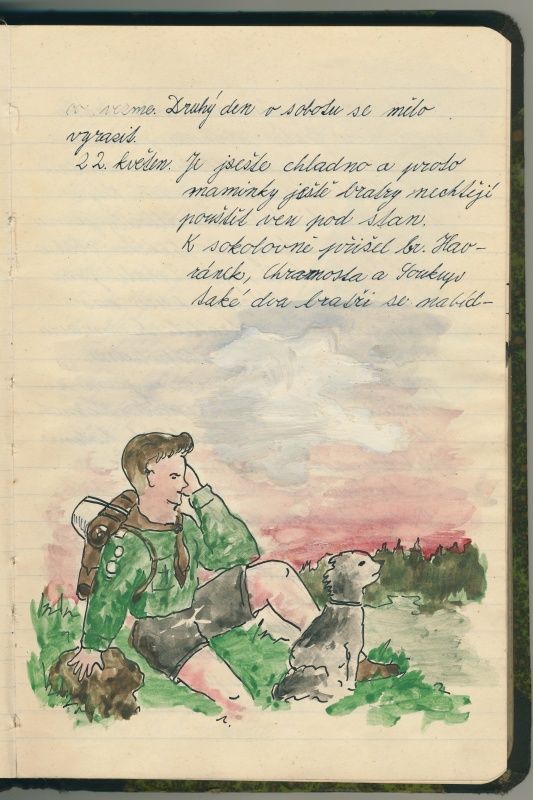 vezme. Druhý den v sobotu se mělo
vyrazit.
22. květen. Je ještě chladno a proto
maminky ještě bratry nechtějí
pouštět ven pod stan.
K sokolovně přišel br. Hav-
ránek, Chramosta a Soukup
také dva bratři se nabíd-